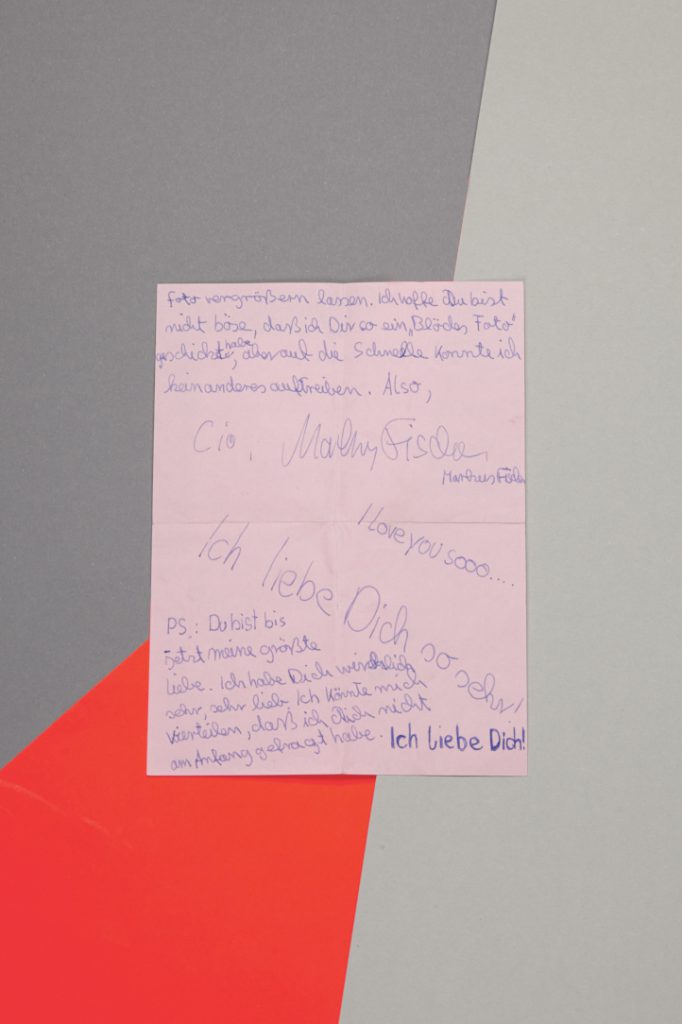 Foto vergrößern lassen. Ich hoffe Du bist
nicht böse, daß ich Dir so ein „Blödes Foto“
geschickt habe, aber auf die Schnelle konnte ich
kein anderes auftreiben. Also,
Cio,
I love you sooo....
Ich liebe Dich so sehr!
PS.: Du bist bis
jetzt meine größte
liebe. Ich habe Dich wirklich
sehr, sehr lieb. Ich könnte mich
vierteilen, daß ich Dich nicht
am Anfang gefragt habe. Ich liebe Dich!